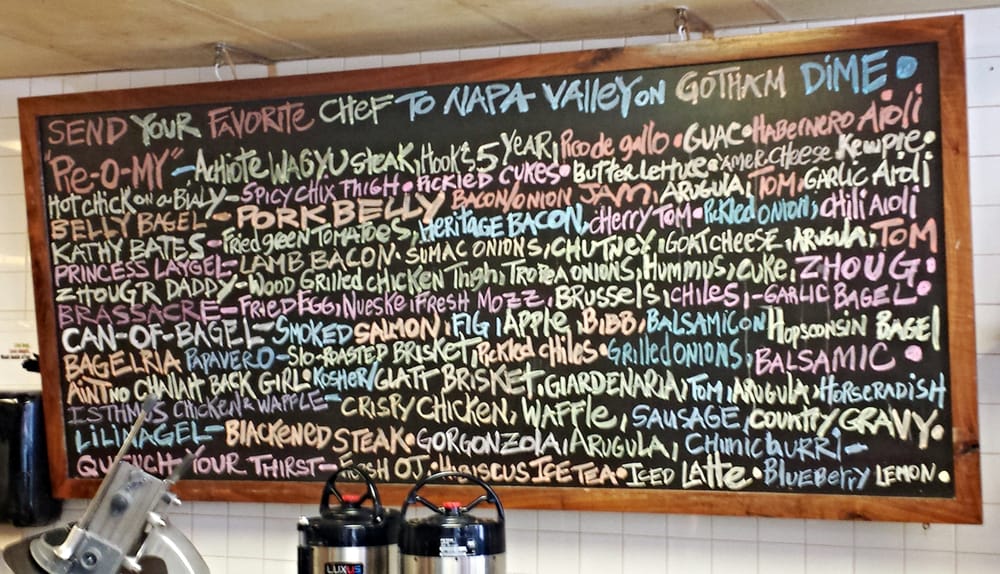 SEND YOUR FAVORITE CHEF TO NAPA VALLEY ON GOTHAM DIME •
"PIE-O-MY" - ACHIOTE WAGYU STEAK, HOOK'S 5 YEAR, PICO DE GALLO • GUAC • HABERNERO AIOLI
HOT CHICK ON A BIALY - SPICY CHIX THIGH • PICKLED CUKES • BUTTER LETTUCE • AMER. CHEESE KEWPIE •
BELLY BAGEL - PORK BELLY BACON/ONION JAM, ARUGULA, TOM • GARLIC AIOLI
KATHY BATES - FRIED GREEN TOMATOES, HERITAGE BACON, CHERRY TOM • PICKLED ONION, CHILI AIOLI
PRINCESS LAYGEL - LAMB BACON • SUMAC ONIONS, CHUTNEY, GOAT CHEESE, ARUGULA, TOM
ZHOUG R DADDY - WOOD GRILLED CHICKEN THIGH, TROPEA ONIONS, HUMMUS, CUKE, ZHOUG •
BRASSACRE - FRIED EGG, NUESKE, FRESH MOZZ, BRUSSELS, CHILES, - GARLIC BAGEL •
CAN-OF-BAGEL - SMOKED SALMON, FIG, APPLE, BIBB, BALSAMIC ON HOPSCONSIN BAGEL
BAGELRIA PAPAVERO - SLO-ROASTED BRISKET, PICKLED CHILES • GRILLED ONIONS, BALSAMIC •
AINT NO CHALLAH BACK GIRL • KOSHER/GLATT BRISKET, GIARDENARIA, TOM, ARUGULA, HORSERADISH
ISTHMUS CHICKEN & WAFFLE - CRISPY CHICKEN, WAFFLE, SAUSAGE, COUNTRY GRAVY •
LILINAGEL - BLACKENED STEAK • GORGONZOLA, ARUGULA, CHIMICHURRI -
QUENCH YOUR THIRST - FRESH OJ • HIBISCUS ICE TEA • ICED LATTE • BLUEBERRY LEMON •
LUXUS